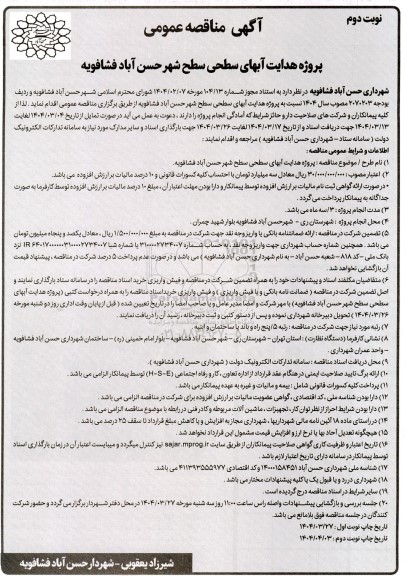 نوبت دوم
آگهی مناقصه عمومی
پروژه هدایت آبهای سطحی سطح شهر حسن آباد فشافویه
شهرداری حسن آباد فشافویه در نظر دارد به استناد مجوز شماره ۱۰۴/۱۳ مورخه ۱۴۰۴/۰۲/۰۷ شورای محترم اسلامی شهر حسن آباد فشافویه و ردیف
بودجه ۲۰۷۰۲۰۳ مصوب سال ۱۴۰۴ نسبت به پروژه هدایت آبهای سطحی سطح شهر حسن آباد فشافویه از طریق برگزاری مناقصه عمومی اقدام نماید . لذا از
کلیه پیمانکاران و شرکت های صلاحیت دار و حائز شرایط که آمادگی انجام پروژه را دارند ، دعوت به عمل می آید در صورت تمایل از تاریخ ۱۴۰۴/۰۳/۰۴ لغایت
۱۴۰۴/۰۳/۱۳ جهت دریافت اسناد و از تاریخ ۱۴۰۴/۰۳/۱۷ لغایت ۱۴۰۴/۰۳/۲۶ جهت بارگذاری اسناد و سایر مدارک مورد نیاز به سامانه تدارکات الکترونیک
دولت ( سامانه ستاد – شهرداری حسن آباد فشافویه ) مراجعه و اقدام نمایند :
اطلاعات و شرایط عمومی مناقصه :
۱) نام طرح / موضوع مناقصه : پروژه هدایت آبهای سطحی سطح شهر حسن آباد فشافویه .
۲) اعتبار مصوب : ۳۰/۰۰۰/۰۰۰/۰۰۰ ریال معادل سه میلیارد تومان با احتساب کلیه کسورات قانونی و ۱۰ درصد مالیات بر ارزش افزوده می باشد.
* در صورت ارائه گواهی ثبت نام مالیات بر ارزش افزوده توسط پیمانکار و دارا بودن مهلت اعتبار آن ، مبلغ ۱۰ درصد مالیات بر ارزش افزوده توسط کارفرما به صورت
جداگانه به پیمانکار پرداخت می گردد .
۳) مدت انجام پروژه : ۳/سه ماه می باشد.
۴) محل انجام پروژه : شهرستان ری – شهر حسن آباد فشافویه بلوار شهید چمران .
۵) تضمین شرکت در مناقصه : ارائه ضمانتنامه بانکی یا واریز وجه نقد جهت شرکت در مناقصه به مبلغ ۱/۵۰۰/۰۰۰/۰۰۰ ریال ، معادل یکصد و پنجاه میلیون تومان
می باشد . همچنین شماره حساب شهرداری جهت واریز وجه نقد به حساب شماره ۳۱۰۰۰۰۲۷۳۴۰۰۷ با شماره شبا
بانک ملی – کد ۸۱۸ – شعبه حسن آباد – به نام شهرداری حسن آباد فشافویه ) می باشد و در صورت عدم پرداخت ۵ درصد شرکت در مناقصه ، پیشنهاد قیمت
آن بازگشایی نخواهد شد .
۶) متقاضیان مکلفند اسناد و پیشنهادات خود را به همراه تضمین شرکت در مناقصه و فیش واریزی خرید اسناد مناقصه را در سامانه ستاد بارگذاری نمایند و
اصل تضمین شرکت در مناقصه ( ضمانت نامه بانکی و یا فیش واریزی ) و فیش واریزی خرید اسناد مناقصه را به همراه درخواست کتبی ( پروژه هدایت آبهای
سطحی سطح شهر حسن آباد فشافویه ) با مهر شرکت و امضا مدیر عامل و یا صاحب امضا را در تاریخ تعیین شده ( قبل از پایان وقت اداری روز دو شنبه مورخه
۱۴۰۴/۰۳/۲۶ ) تحویل دبیرخانه شهرداری نموده و پس از دستور کتبی و ثبت دبیرخانه ، رسید آن را دریافت نمایند .
۷) رتبه مورد نیاز جهت شرکت در مناقصه : رتبه ۵/پنج راه و باند یا ساختمان و ابنیه
۸) نشانی کارفرما (دستگاه نظارت ) : استان تهران – شهرستان ری – شهر حسن آباد فشافویه – بلوار امام خمینی (ره) – ساختمان شهرداری حسن آباد فشافویه
– واحد عمران شهرداری .
۹) محل دریافت اسناد مناقصه : سامانه تدارکات الکترونیک دولت ( شهرداری حسن آباد فشافویه ) .
۱۰) ارائه برگ تایید صلاحیت ایمنی در هنگام عقد قرارداد از اداره تعاون ، کار و رفاه اجتماعی (H-S-E) توسط پیمانکار الزامی می باشد .
۱۱) پرداخت کلیه کسورات قانونی شامل : بیمه و مالیات و غیره به عهده پیمانکار می باشد .
۱۲) دارا بودن شناسه ملی ، کد اقتصادی ، گواهی عضویت مالیات بر ارزش افزوده برای شرکت در مناقصه الزامی می باشد .
۱۳) دارا بودن شرایط احراز از نظر توان کار ، تجهیزات ، ماشین آلات مربوطه و کادر فنی در رابطه با موضوع مناقصه الزامی می باشد .
۱۴) در راستای ماده ۱۸ آئین نامه مالی شهرداریها ، شهرداری مجاز به افزایش و یا کاهش مبلغ قرارداد تا سقف ۲۵ درصد می باشد.
۱۵) هیچگونه تعدیل آحاد بها یا نرخ ارز و افزایش قیمت مشمول این قرارداد نخواهد شد .
۱۶) تاریخ اعتبار و ظرفیت کاری گواهی صلاحیت پیمانکاران از طریق سایت sajar.mporg.ir نیز کنترل میگردد و میبایست اعتبار آن در زمان بارگذاری اسناد
توسط پیمانکار در سامانه دارای تاریخ اعتبار لازم باشد .
۱۷) شناسه ملی شهرداری حسن آباد ۱۴۰۰۰۱۵۸۴۵۱ و کد اقتصادی ۴۱۱۳۹۳۵۵۵۹۷۷ می باشد.
۱۸) شهرداری در رد و یا قبول یک یا کلیه پیشنهادات مختار می باشد .
۱۹) سایر شرایط در اسناد مناقصه درج گردیده است .
۲۰) جلسه بررسی و بازگشایی پیشنهادات واصله راس ساعت ۱۱:۰۰ روز سه شنبه مورخه ۱۴۰۴/۰۳/۲۷ در محل دفتر شهردار برگزار می گردد و حضور شرکت
کنندگان در جلسه مناقصه فوق بلامانع می باشد.
تاریخ چاپ نوبت اول :
تاریخ چاپ نوبت دوم : ۱۴۰۴/۰۳/۰۴
شیرزاد یعقوبی - شهردار حسن آباد فشافویه